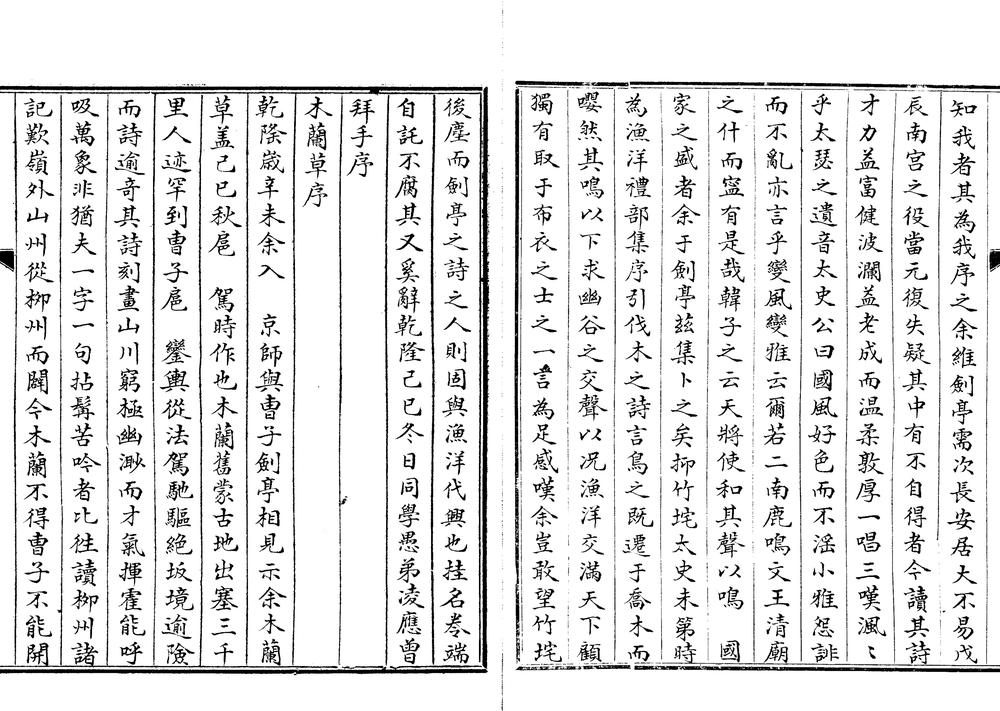 知我者其為我序之余維劍亭需次長安居大不易戊
辰南宮之役當元復失疑其中有不自得者今讀其詩
才力益富健波瀾益老成而温柔敦厚一唱三嘆渢〻
乎太瑟之遺音太史公曰國風好色而不滛小雅怨誹
而不亂亦言乎變風變雅云爾若二南鹿鳴文王清廟
之什而寍有是哉韓子之云天將使和其聲以鳴　國
家之盛者余于劍亭兹集卜之矣抑竹垞太史未第時
為漁洋禮部集序引伐木之詩言鳥之既遷于喬木而
嚶然其鳴以下求幽谷之交聲以况漁洋交滿天下顧
獨有取于布衣之士之一言為足感嘆余豈敢望竹垞
後塵而劍亭之詩之人則固與漁洋代興也挂名卷端
自託不腐其又奚辭乾隆己巳冬日同學愚弟凌應曾
拜手序
木蘭草序
乾隆歲辛未余入　京師與曹子劍亭相見示余木蘭
草盖己巳秋扈　駕時作也木蘭舊蒙古地出塞三千
里人迹罕到曹子扈　鑾輿從法駕馳驅絶坂境逾險
而詩逾奇其詩刻畫山川窮極幽渺而才氣揮霍能呼
吸萬象非猶夫一字一句拈髯苦吟者比徃讀栁州諸
記歎嶺外山川從栁州而闢今木蘭不得曹子不能開